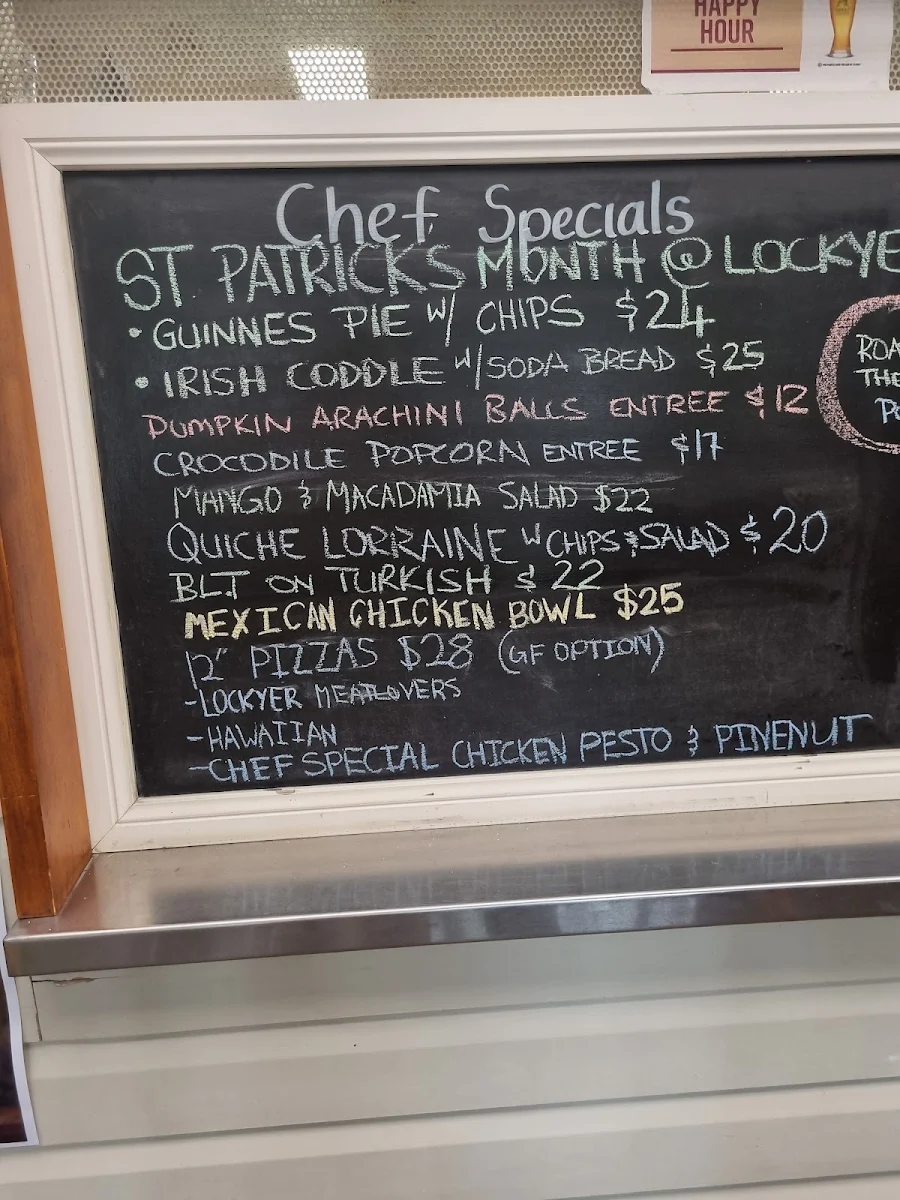 HAPPY
HOUR
Chef Specials
ST PATRICKS MONTH @ LOCKYE
• GUINNES PIE W/ CHIPS $24
• IRISH CODDLE W/SODA BREAD $25
PUMPKIN ARACHINI BALLS ENTREE $12
CROCODILE POPCORN ENTREE $17
MANGO & MACADAMIA SALAD $22
QUICHE LORRAINE W CHIPS & SALAD $20
BLT ON TURKISH $22
MEXICAN CHICKEN BOWL $25
12" PIZZAS $28 (GF OPTION)
-LOCKYER MEATLOVERS
-HAWAIIAN
-CHEF SPECIAL CHICKEN PESTO & PINENUT
ROA
THE